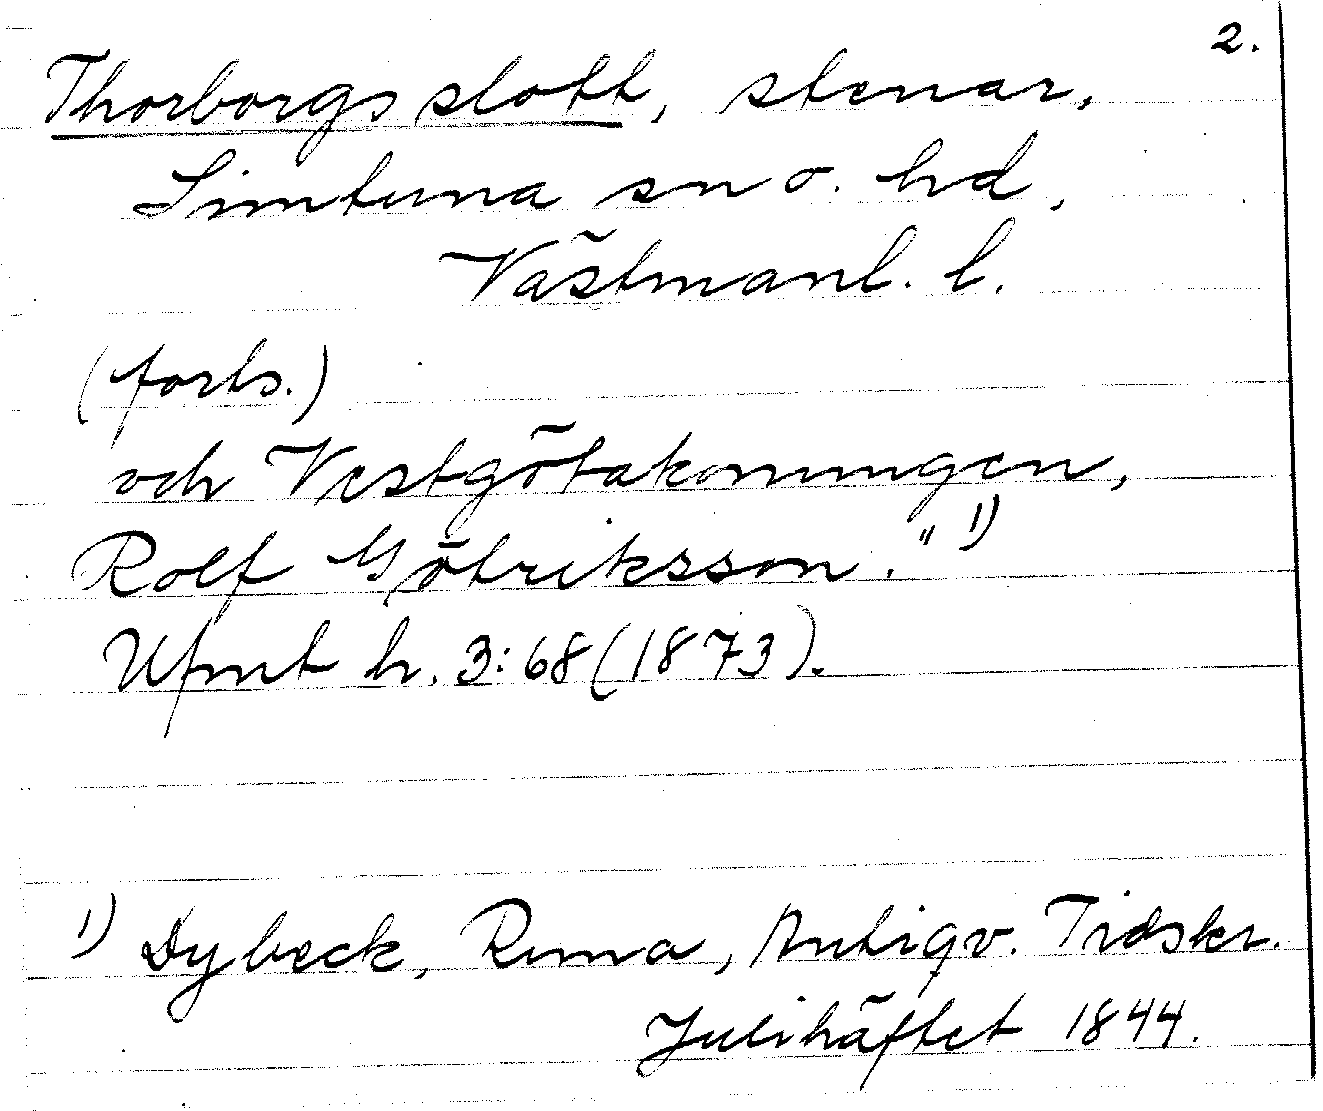 2.
Thorborgs slott, stenar,
Simtuna sn o. hd,
Västmanl. l.
(forts.)
och Vestgötakonungen,
Rolf Götriksson." 1)
Ufmt h. 3:68 (1873).
1) Dybeck, Runa, Antiqv. Tidskr.
Julihäftet 1844.